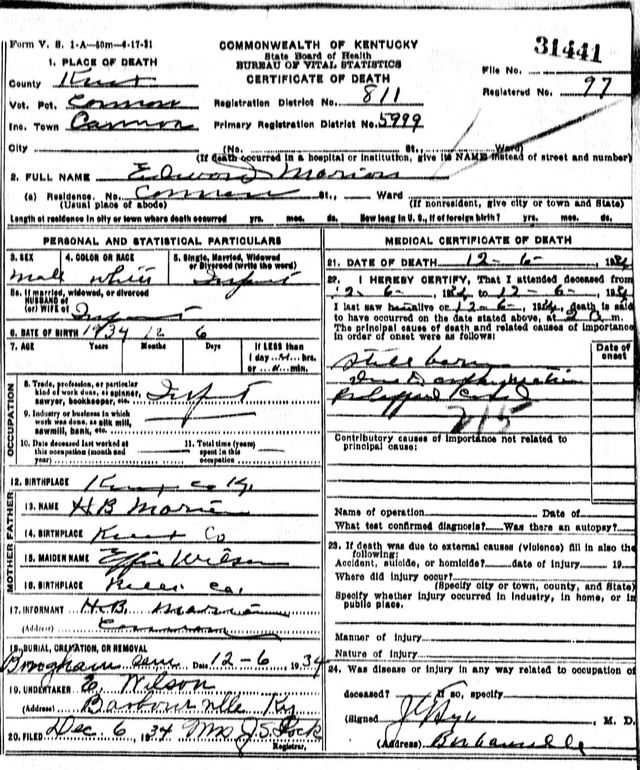 Form V. S. 1-A—50m—4-17-31
COMMONWEALTH OF KENTUCKY
State Board of Health
BUREAU OF VITAL STATISTICS
CERTIFICATE OF DEATH
31441
File No.
Registered No. 97
1. PLACE OF DEATH
County Knox
Vot. Pct. Cannon
Inc. Town Cannon
City
Registration District No. 811
Primary Registration District No. 5999
(No. St., Ward)
(If death occurred in a hospital or institution, give its NAME instead of street and number)
2. FULL NAME Edward Marion
(a) Residence. No. Cannon St., Ward
(Usual place of abode) (If nonresident, give city or town and State)
Length of residence in city or town where death occurred yrs. mos. ds. How long in U. S., if of foreign birth? yrs. mos. ds.
PERSONAL AND STATISTICAL PARTICULARS
3. SEX 4. COLOR OR RACE 5. Single, Married, Widowed or Divorced (write the word)
male white Infant
5a. If married, widowed, or divorced
HUSBAND of
(or) WIFE of Infant
6. DATE OF BIRTH 1934 12 6
7. AGE Years Months Days If LESS than
1 day hrs.
or min.
OCCUPATION
8. Trade, profession, or particular
kind of work done, as spinner,
sawyer, bookkeeper, etc. Infant
9. Industry or business in which
work was done, as silk mill,
sawmill, bank, etc.
10. Date deceased last worked at
this occupation (month and
year)
11. Total time (years)
spent in this
occupation
12. BIRTHPLACE Knox co Ky.
FATHER
13. NAME H B Marion
14. BIRTHPLACE Knox Co
MOTHER
15. MAIDEN NAME Effie Wilson
16. BIRTHPLACE Co.
17. INFORMANT H.B. Marion
(Address) Cannon
18. BURIAL, CREMATION, OR REMOVAL
Bingham Cem Date 12-6 1934
19. UNDERTAKER E. Wilson
(Address) Barbourville Ky
20. FILED Dec 6 1934 Mrs J S Lock
Registrar.
MEDICAL CERTIFICATE OF DEATH
21. DATE OF DEATH 12-6- 1934
22. I HEREBY CERTIFY, That I attended deceased from
12-6- 1934 to 12-6- 1934
I last saw h alive on 12-6- 1934, death is said
to have occurred on the date stated above, at
The principal cause of death and related causes of importance
in order of onset were as follows:
Date of
onset
Still born
Due to asphyxiation
prolapsed Cord
215
Contributory causes of importance not related to
principal cause:
Name of operation Date of
What test confirmed diagnosis? Was there an autopsy?
23. If death was due to external causes (violence) fill in also the
following:
Accident, suicide, or homicide? date of injury 19
Where did injury occur?
(Specify city or town, county, and State)
Specify whether injury occurred in industry, in home, or in
public place.
Manner of injury
Nature of injury
24. Was disease or injury in any way related to occupation of
deceased? If so, specify
(Signed M. D.
(Address) Barbourville